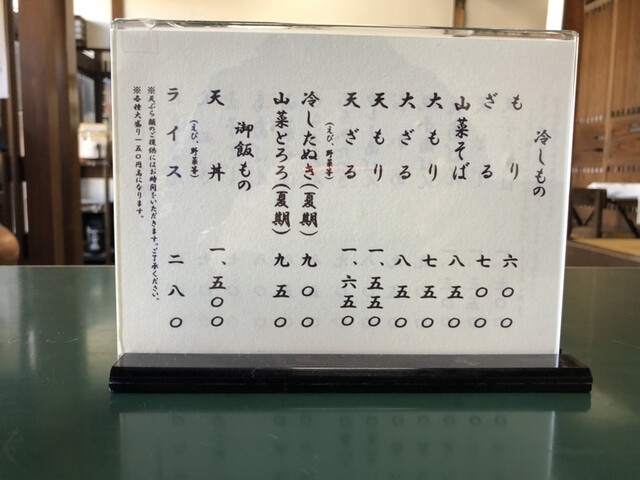 冷しもの
もり 六〇〇
ざる 七〇〇
山菜そば 八五〇
大もり 七五〇
大ざる 八五〇
天もり 一、五五〇
天ざる 一、六五〇
(えび、野菜等)
冷したぬき(夏期) 九〇〇
山菜とろろ(夏期) 九五〇
御飯もの
天丼 一、五〇〇
(えび、野菜等)
ライス 二八〇
※天ぷら類のご提供にはお時間をいただきます。ご了承ください。
※各種大盛り一五〇円高になります。